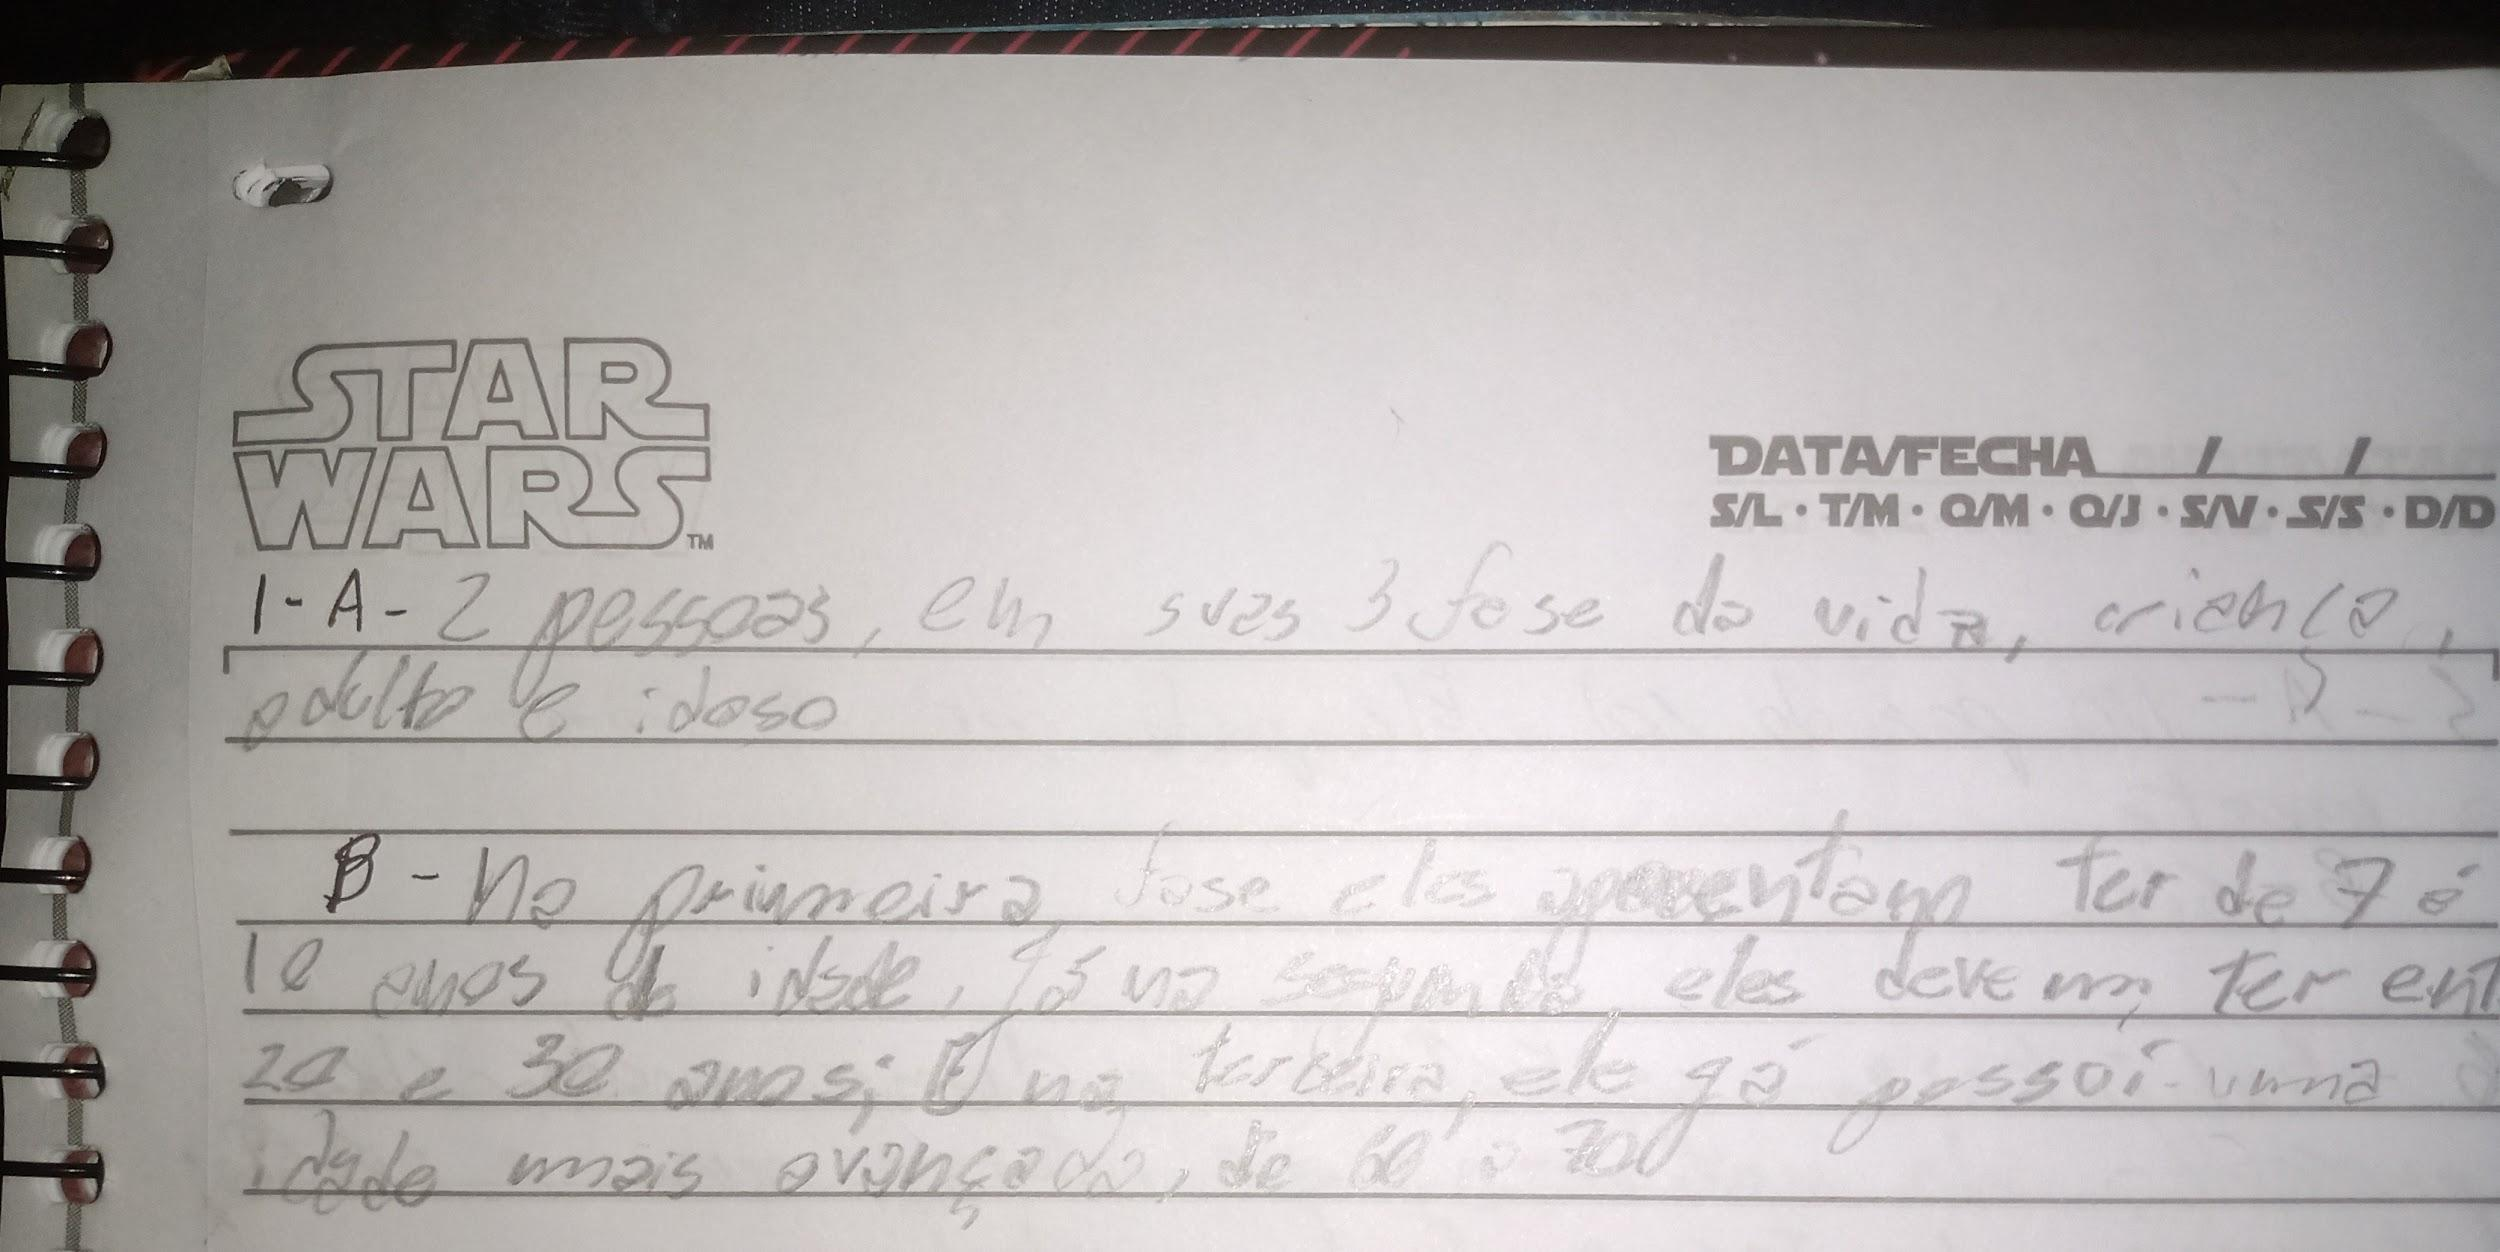 STAR
WARS TM
DATA/FECHA / /
S/L • T/M • Q/M • Q/J • S/V • S/S • D/D
1-A-2 pessoas, em suas 3 fase da vida, criança,
adulto e idoso
B - Na primeira fase eles apresentam ter de 7 á
10 anos de idade, gá na segunda, eles devem ter ent
20 e 30 anos; E na terceira, ele gá possoi uma
idade mais avançada, de 60 a 70